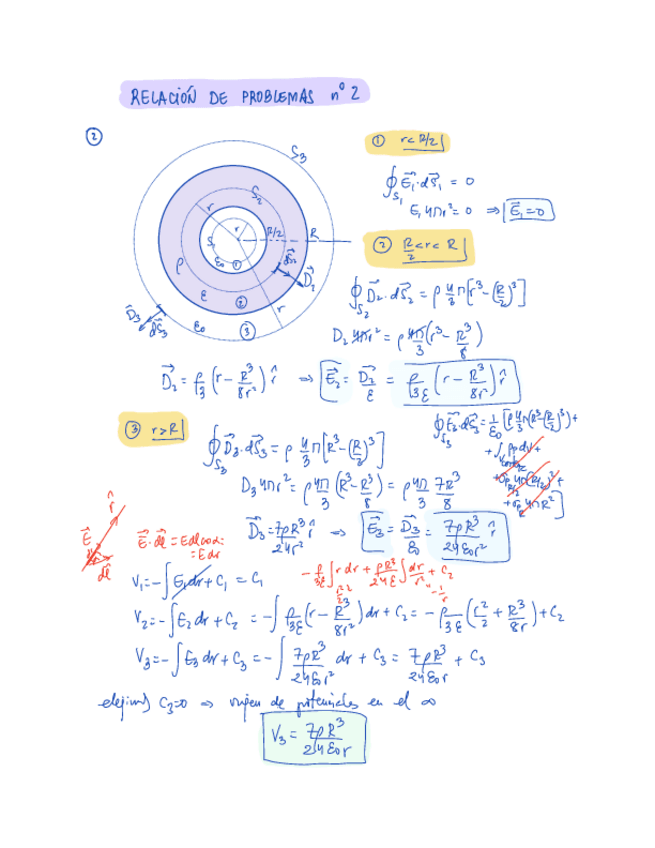 RELACIÓN DE PROBLEMAS nº 2
②
S₃
S₂
r
r
R/2
R
S₁
ε₀
①
ρ
ε
②
dS⃗₂
D⃗₂
r
D⃗₃
dS⃗₃
ε₀
③
① r<R/2
∮_S₁ E⃗₁·dS⃗₁ = 0
E₁4πr²=0 ⇒ E⃗₁=0
② R/2<r<R
∮_S₂ D⃗₂·dS⃗₂ = ρ 4/3 π[r³-(R/2)³]
D₂4πr² = ρ 4π/3 (r³-R³/8)
D⃗₂ = ρ/3 (r-R³/8r²) r̂ ⇒ E⃗₂ = D⃗₂/ε = ρ/3ε (r-R³/8r²) r̂
③ r>R
∮_S₃ D⃗₃·dS⃗₃ = ρ 4/3 π[R³-(R/2)³]
∮_S₃ E⃗₃·dS⃗₃ = 1/ε₀ [ρ 4/3 π(R³-(R/2)³)+
+∫ρp dv+
+σp 4π(R/2)²+
+σp 4πR²]
D₃4πr² = ρ 4π/3 (R³-R³/8) = ρ 4π/3 7R³/8
D⃗₃ = 7ρR³/24r² r̂ ⇒ E⃗₃ = D⃗₃/ε₀ = 7ρR³/24ε₀r² r̂
r̂
E⃗
dl⃗
E⃗·dl⃗ = Edlcosα=
=Edr
-ρ/3ε ∫r dr + ρR³/24ε ∫dr/r² + C₂
r²/2
-1/r
V₁=-∫E₁dr+C₁ = C₁
V₂=-∫E₂dr+C₂ = -∫ρ/3ε (r-R³/8r²)dr+C₂ = -ρ/3ε (r²/2+R³/8r)+C₂
V₃=-∫E₃dr+C₃ = -∫7ρR³/24ε₀r² dr + C₃ = 7ρR³/24ε₀r + C₃
elegimos C₃=0 ⇒ origen de potenciales en el ∞
V₃ = 7ρR³/24ε₀r